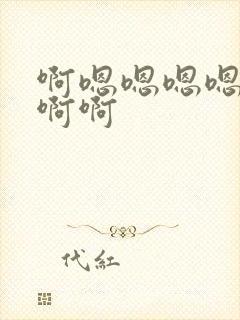 啊嗯嗯嗯嗯
啊啊
代红